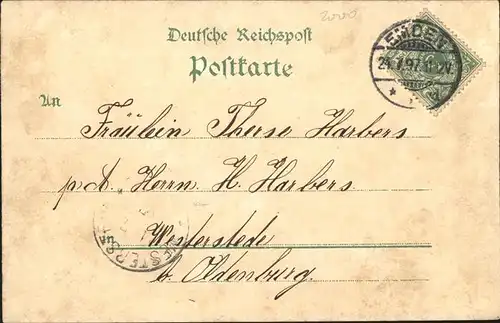 2000
Deutsche Reichspost
Postkarte
EMDEN
24.7.97.
An
Fräulein Therse Harbers
p. A. Herrn H. Harbers
in
Westerstede
b. Oldenburg.